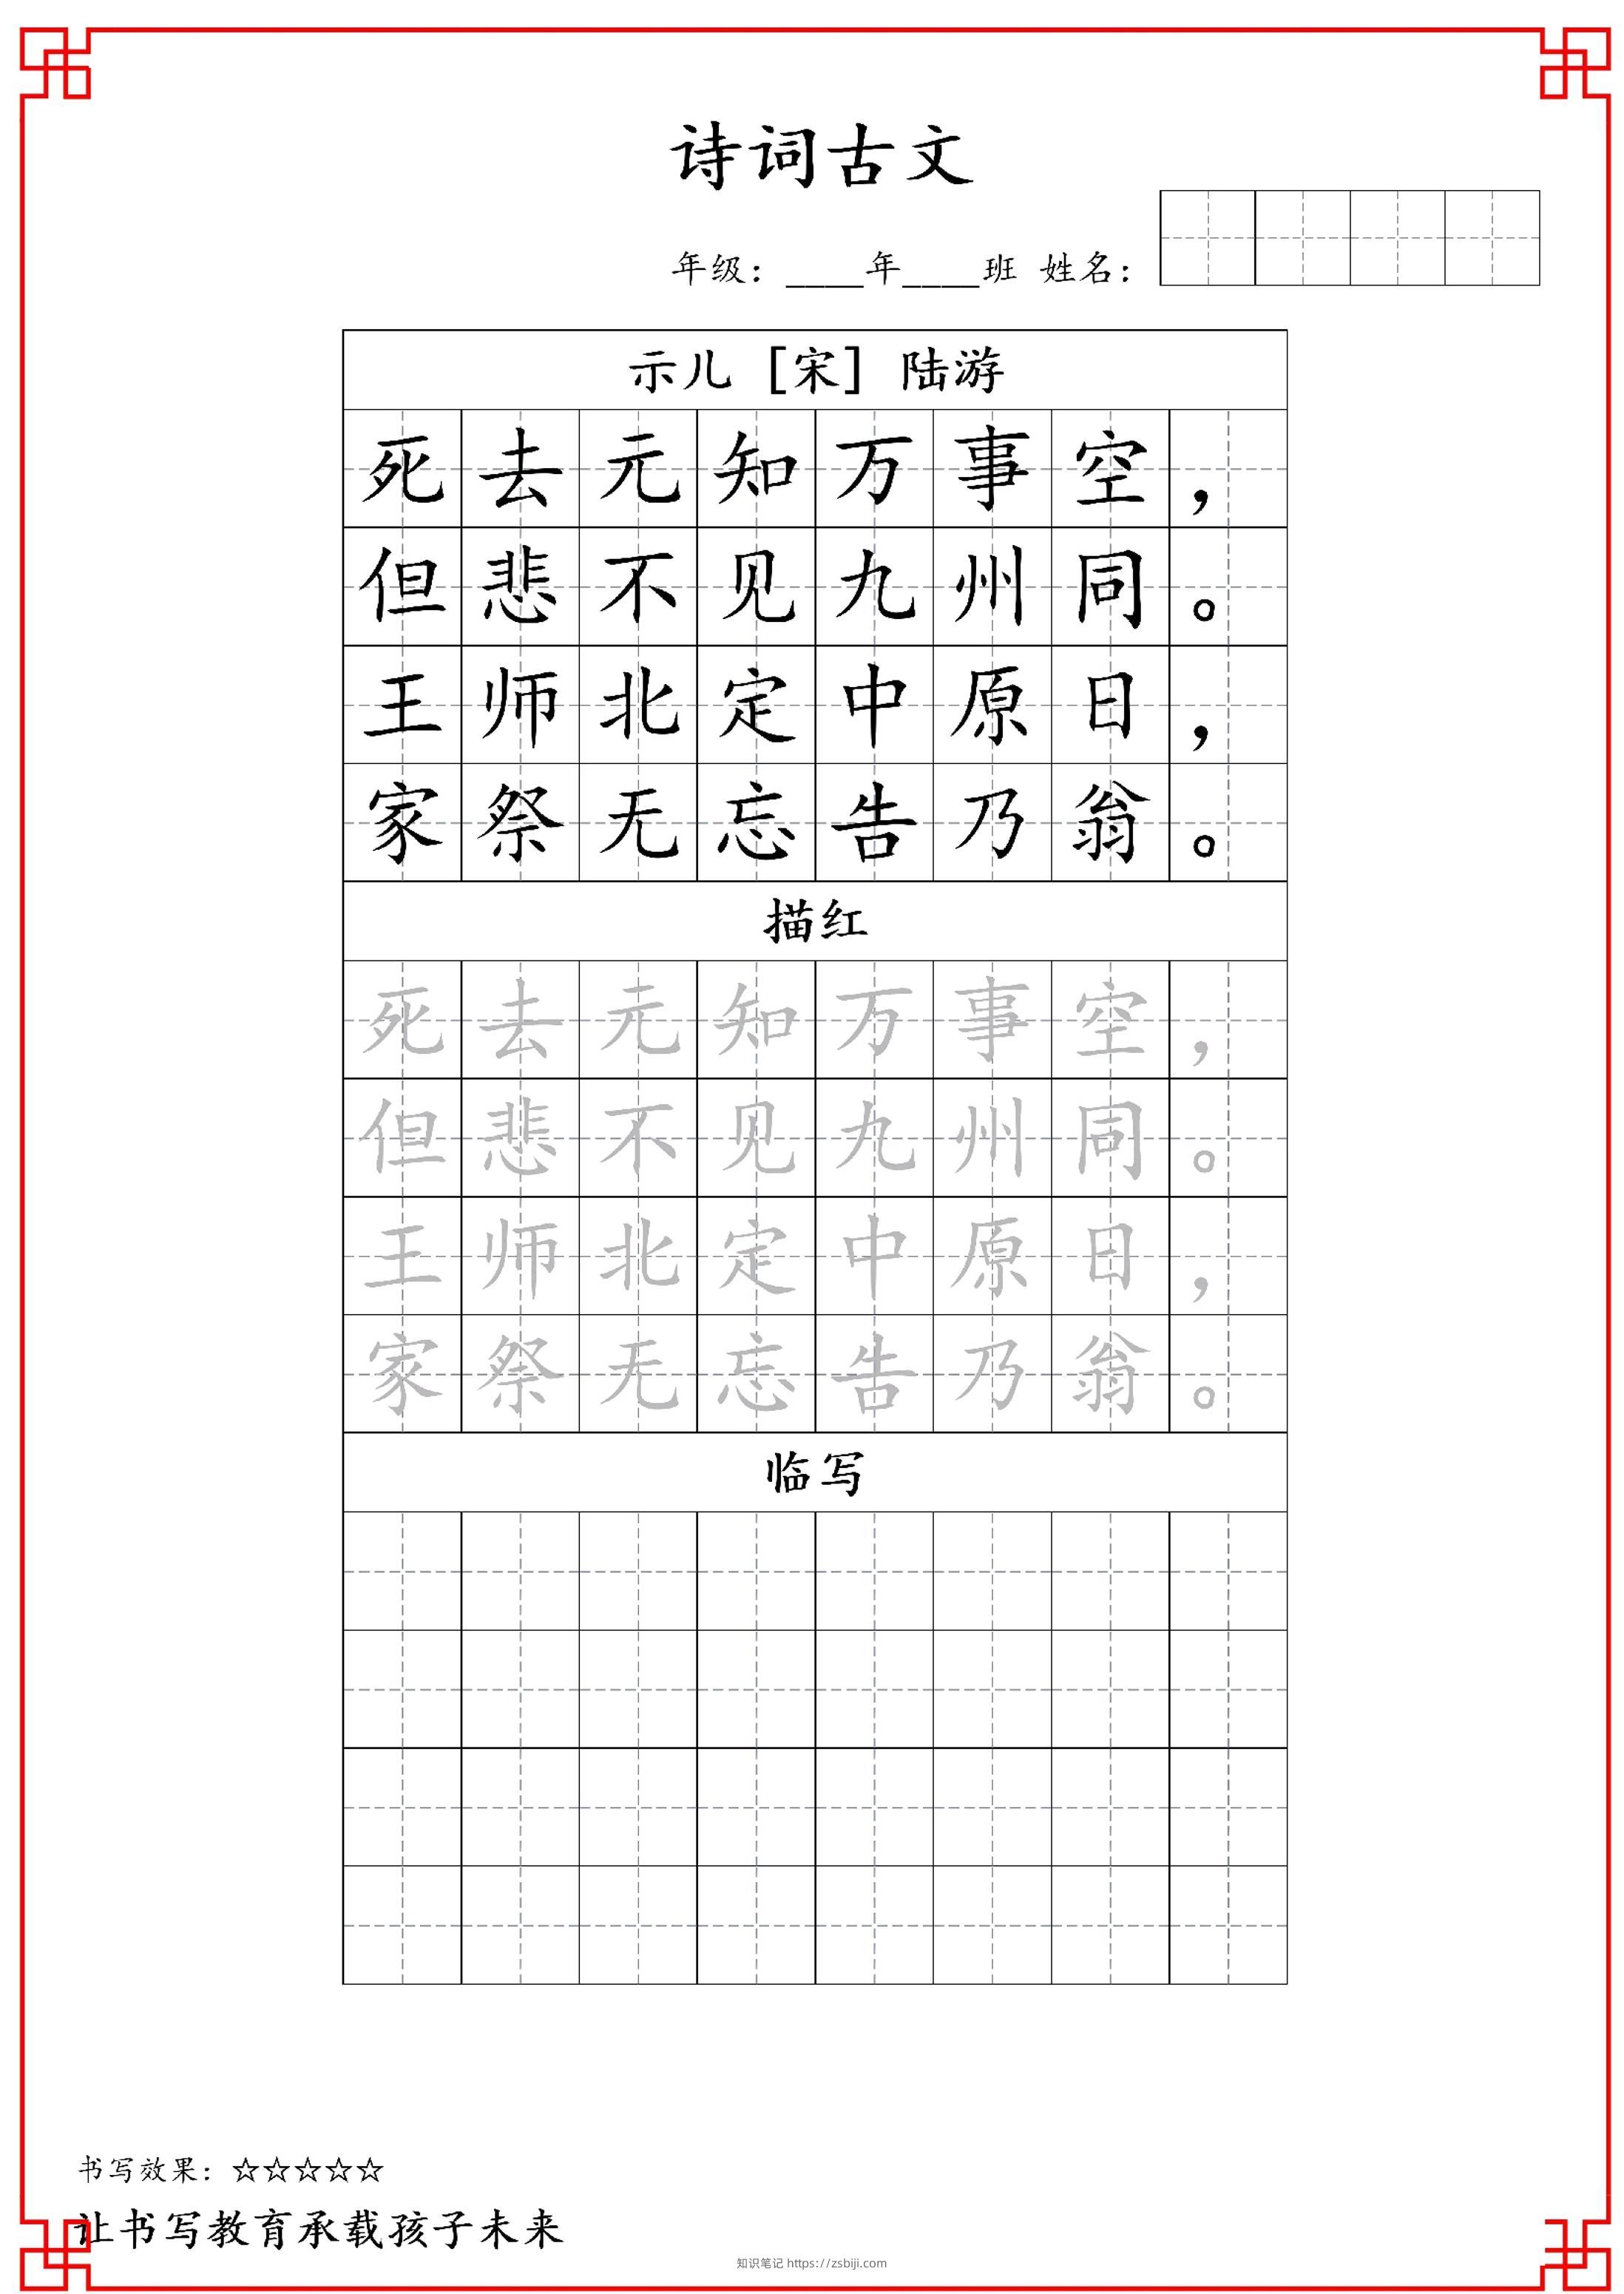 诗词古文
年级：____年____班 姓名：
示儿 [宋] 陆游
死去元知万事空，
但悲不见九州同。
王师北定中原日，
家祭无忘告乃翁。
描红
死去元知万事空，
但悲不见九州同。
王师北定中原日，
家祭无忘告乃翁。
临写
书写效果：☆☆☆☆☆
让书写教育承载孩子未来
知识笔记 https://zsbiji.com